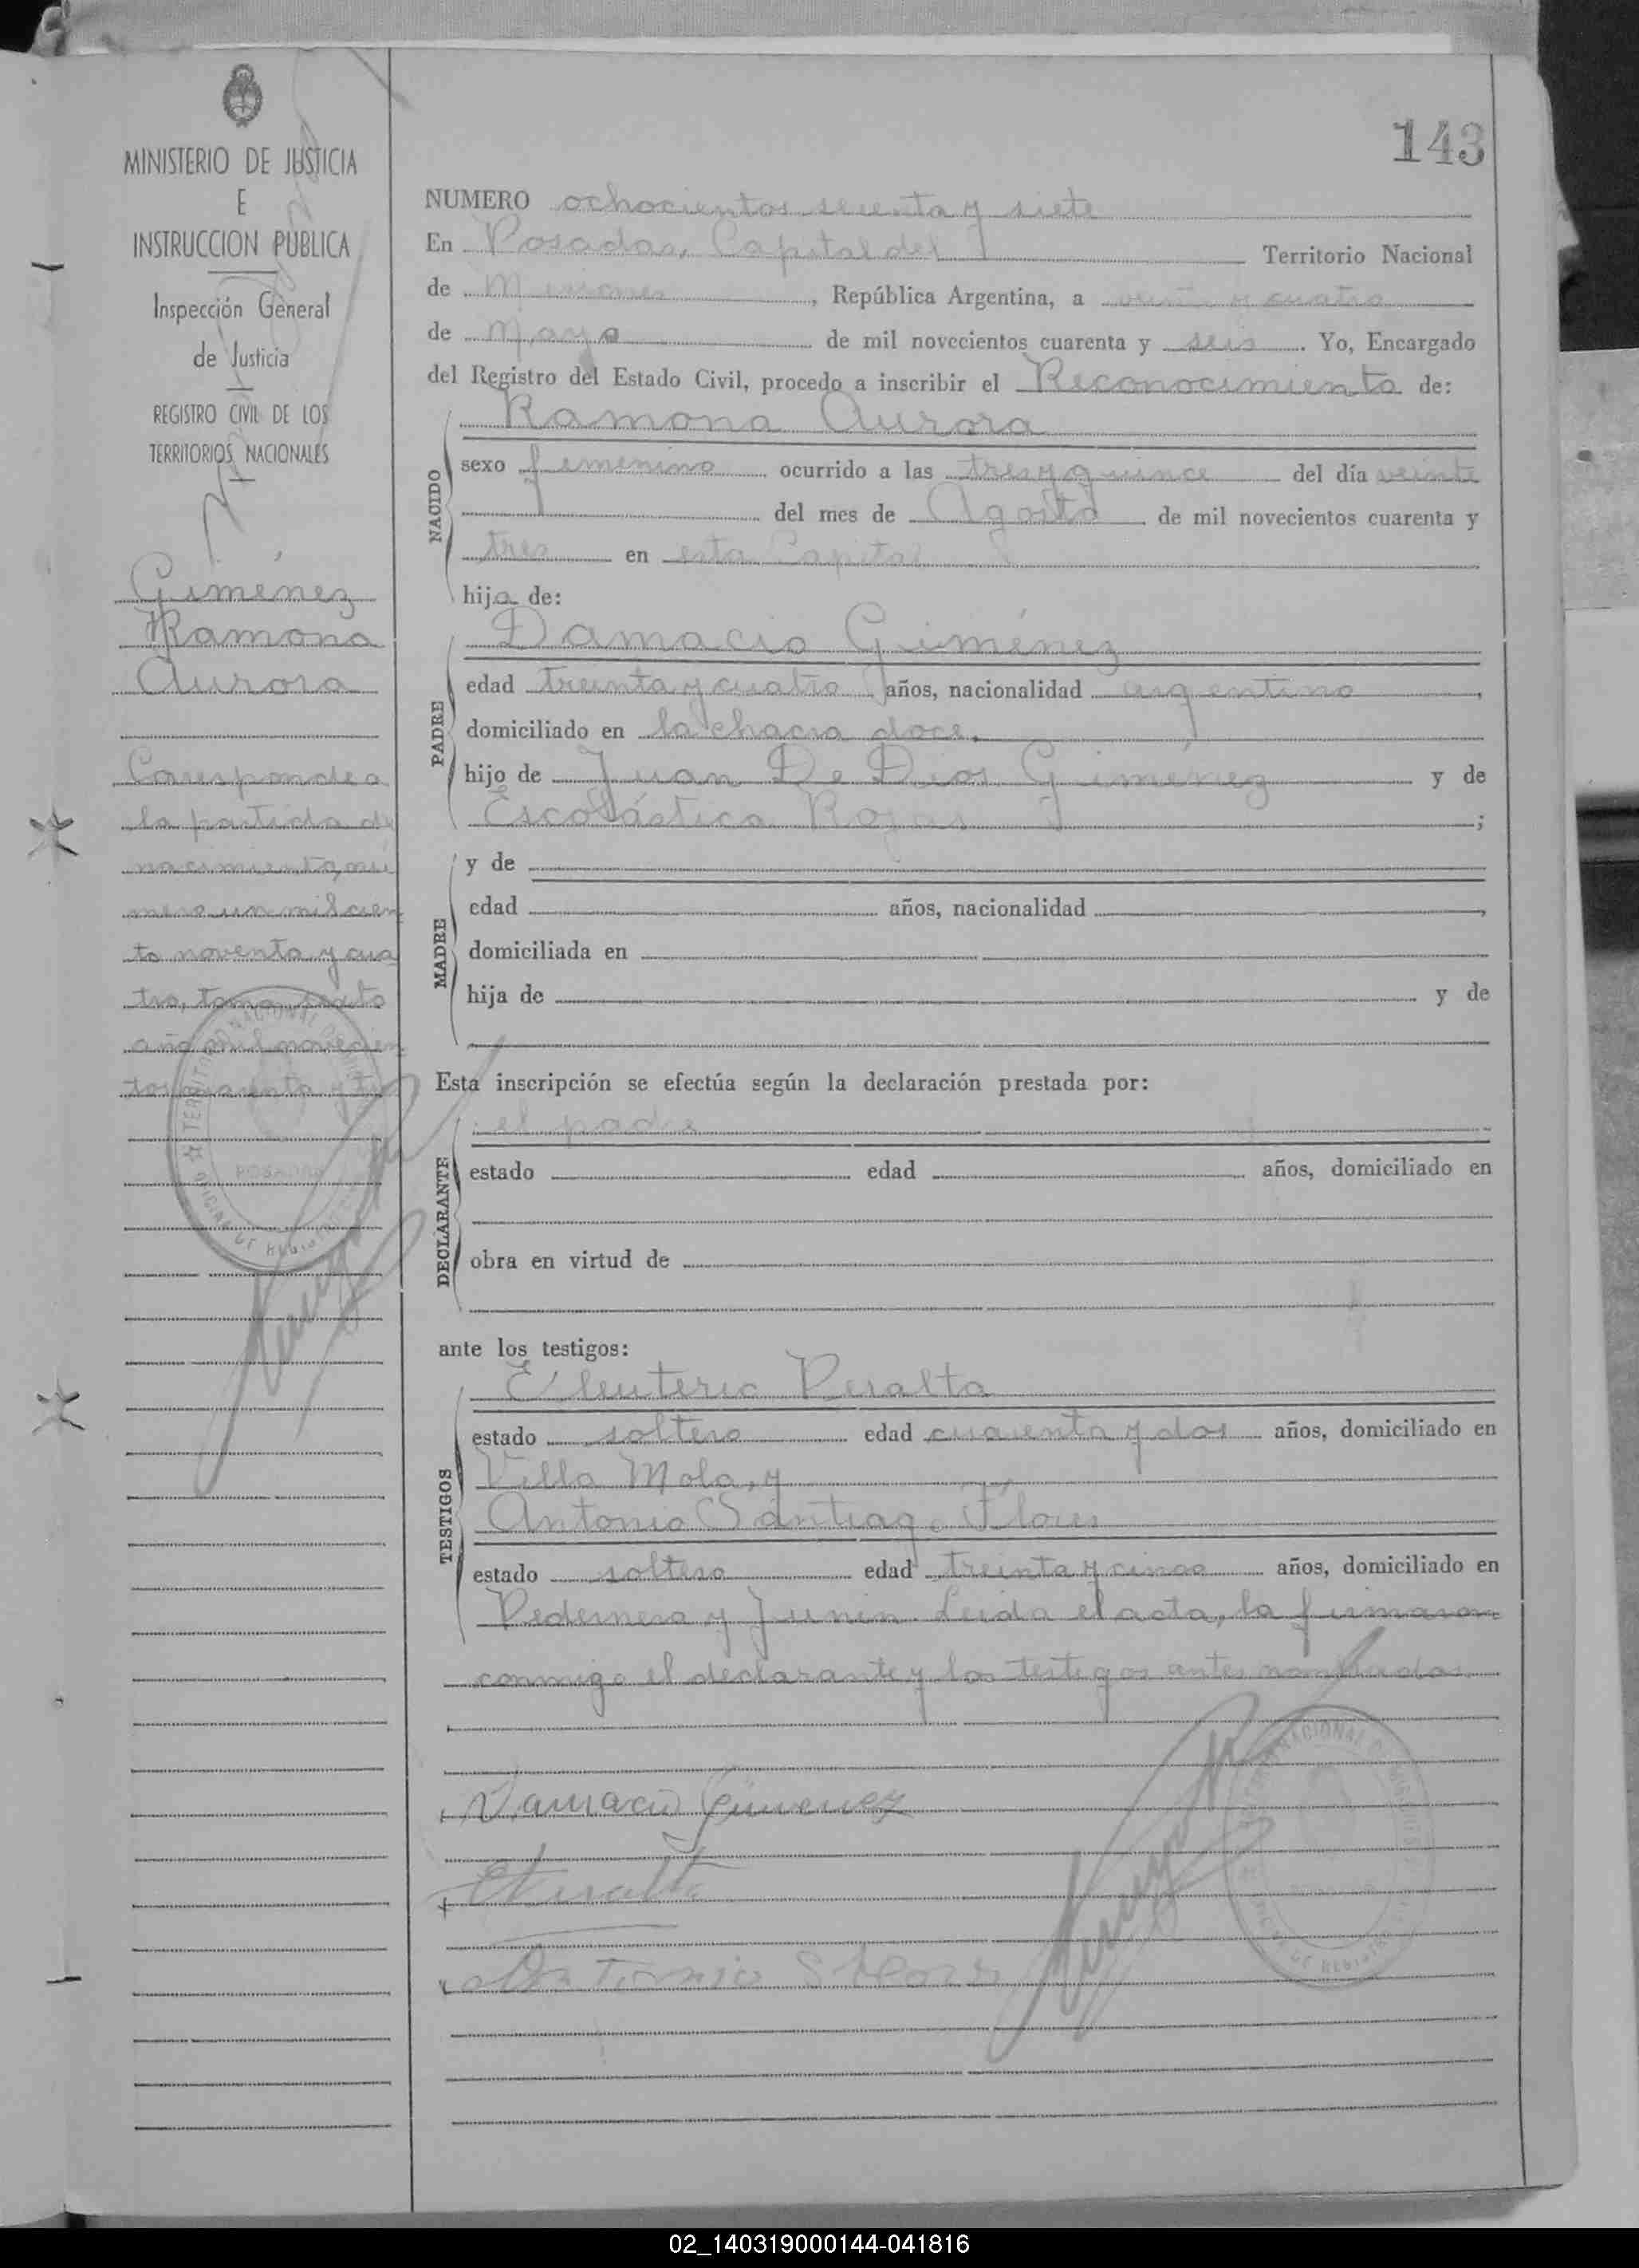 143
MINISTERIO DE JUSTICIA
E
INSTRUCCION PUBLICA
Inspección General
de Justicia
REGISTRO CIVIL DE LOS
TERRITORIOS NACIONALES
Giménez
Ramona
Aurora
Corresponde a
la partida de
nacimiento, nú
mero un mil cien
to noventa y cua
tro, tomo sexto
año mil novecien
tos cuarenta y tres
NUMERO ochocientos sesenta y siete
En Posadas, Capital del Territorio Nacional
de Misiones, República Argentina, a veinte y cuatro
de Mayo de mil novecientos cuarenta y seis. Yo, Encargado
del Registro del Estado Civil, procedo a inscribir el Reconocimiento de:
Ramona Aurora
NACIDO
sexo femenino ocurrido a las tres y quince del día veinte
del mes de Agosto de mil novecientos cuarenta y
tres en esta Capital
hija de:
Damacio Giménez
PADRE
edad treinta y cuatro años, nacionalidad argentino,
domiciliado en la chacra doce.
hijo de Juan De Dios Giménez y de
Escolástica Rojas;
MADRE
y de
edad años, nacionalidad,
domiciliada en
hija de y de
Esta inscripción se efectúa según la declaración prestada por:
el padre
DECLARANTE
estado edad años, domiciliado en
obra en virtud de
ante los testigos:
Eleuterio Peralta
TESTIGOS
estado soltero edad cuarenta y dos años, domiciliado en
Villa Mola, y
Antonio Santiago Flores
estado soltero edad treinta y cinco años, domiciliado en
Pedernera y Junin. Leida el acta, la firmaron
conmigo el declarante y los testigos antes nombrados.
Damacio Gimenez
EPeralta
Antonio S Flores
POSADAS
02_140319000144-041816